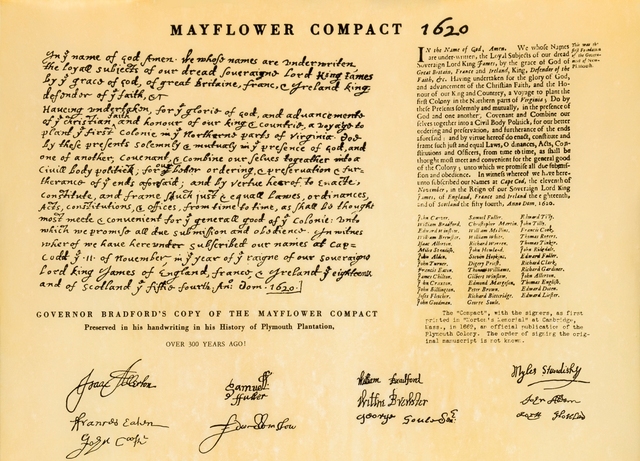 MAYFLOWER COMPACT 1620
In yᵉ name of god Amen. We whose names are underwriten,
the loyall subjects of our dread soveraigne Lord King James
by yᵉ grace of god, of great Britaine, franc, & Ireland king,
defender of yᵉ faith, &c
Haveing undertaken, for yᵉ glorie of god, and advancemente
of yᵉ christian faith and honour of our king & countrie, a voyage to
plant yᵉ first colonie in yᵉ Northerne parts of Virginia. Doe
by these presents solemnly & mutualy in yᵉ presence of god, and
one of another, covenant, & combine our selves togeather into a
Civill body politick; for yᵉ better ordering, & preservation & fur-
therance of yᵉ ends aforesaid; and by vertue hearof to Enacte,
constitute, and frame shuch just & equall Lawes, ordinances,
Acts, constitutions, & offices, from time to time, as shall be thought
most meete & convenient for yᵉ generall good of yᵉ Colonie: unto
which we promise all due submission and obedience. In witnes
wherof we have hereunder subscribed our names at Cap=
Codd yᵉ ·11· of November, in yᵉ year of yᵉ raigne of our soveraigne
Lord King James of England, france, & Ireland yᵉ eighteenth
and of Scotland yᵉ fiftie fourth. An: Dom. 1620.
GOVERNOR BRADFORD'S COPY OF THE MAYFLOWER COMPACT
Preserved in his handwriting in his History of Plymouth Plantation,
OVER 300 YEARS AGO!
IN the Name of God, Amen. We whose Names
are under-written, the Loyal Subjects of our dread
Soveraign Lord King James, by the grace of God of
Great Britain, France and Ireland, King, Defender of the
Faith, &c. Having undertaken for the glory of God,
and advancement of the Christian Faith, and the Ho-
nour of our King and Countrey, a Voyage to plant the
first Colony in the Northern parts of Virginia; Do by
these Presents solemnly and mutually, in the presence of
God and one another, Covenant and Combine our
selves together into a Civil Body Politick, for our better
ordering and preservation, and furtherance of the ends
aforesaid: and by virtue hereof do enact, constitute and
frame such just and equal Laws, Ordinances, Acts, Con-
stitutions and Officers, from time to time, as shall be
thought most meet and convenient for the general good
of the Colony; unto which we promise all due submis-
sion and obedience. In witness whereof we have here-
unto subscribed our Names at Cape Cod, the eleventh of
November, in the Reign of our Soveraign Lord King
James, of England, France and Ireland the eighteenth,
and of Scotland the fifty fourth, Anno Dom. 1620.
This was the first Foundation of the Government of New-Plimouth.
John Carver, Samuel Fuller, Edward Tilly,
William Bradford, Christopher Martin, John Tilly,
Edward Winslow, William Mullins, Francis Cook,
William Brewster, William White, Thomas Rogers,
Isaac Allerton, Richard Warren, Thomas Tinker,
Miles Standish, John Howland, John Ridgdale,
John Alden, Steven Hopkins, Edward Fuller,
John Turner, Digery Priest, Richard Clark,
Francis Eaton, Thomas Williams, Richard Gardiner,
James Chilton, Gilbert Winslow, John Allerton,
John Craxton, Edmond Margeson, Thomas English,
John Billington, Peter Brown, Edward Doten,
Joses Fletcher, Richard Bitteridge, Edward Liester.
John Goodman, George Soule,
The "Compact", with the signers, as first
printed in "Morton's Memorial" at Cambridge,
Mass., in 1669, an official publication of the
Plymouth Colony. The order of signing the
original manuscript is not known.
Isaac Allerton
Samuell ffuller
William Bradford
Myles Standish
Willm Brewster
Francis Eaton
George Soule